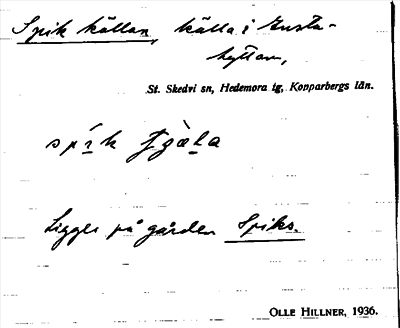 Spik källan, källa i Gusta-
hyttan,
St. Skedvi sn, Hedemora tg, Kopparbergs län.
Ligger på gården Spiks.
OLLE HILLNER, 1936.